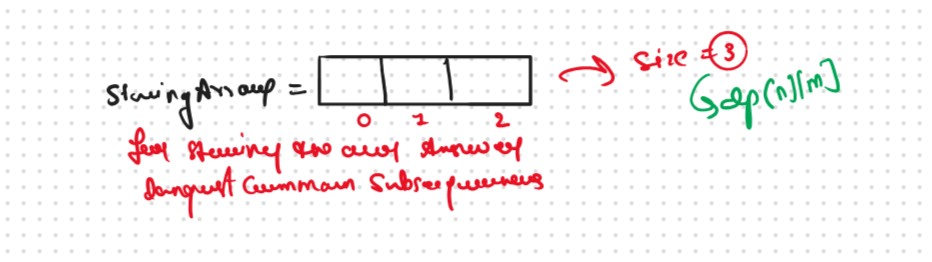 StoringArray = → size = 3
↳ dp[n][m]
0 1 2
for storing the our Answer of
Longest Cummon Subsequences